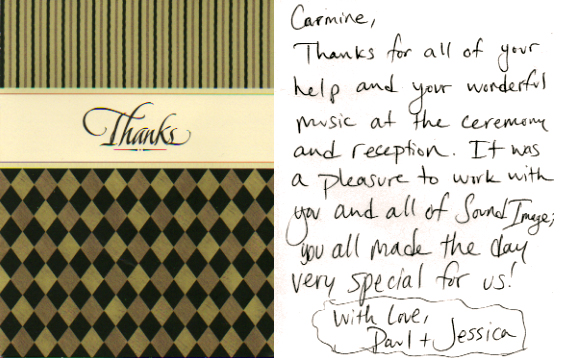 Thanks
Carmine,
Thanks for all of your
help and your wonderful
music at the ceremony
and reception. It was
a pleasure to work with
you and all of Sound Image;
you all made the day
very special for us!
With Love,
Paul + Jessica